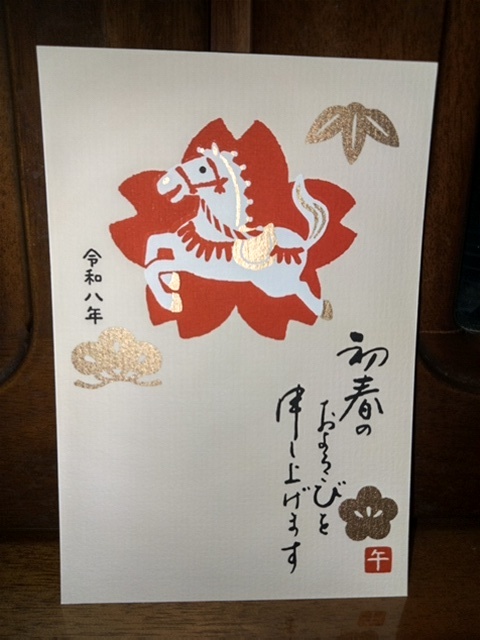 令和八年
初春の
およろこびを
申し上げます
午